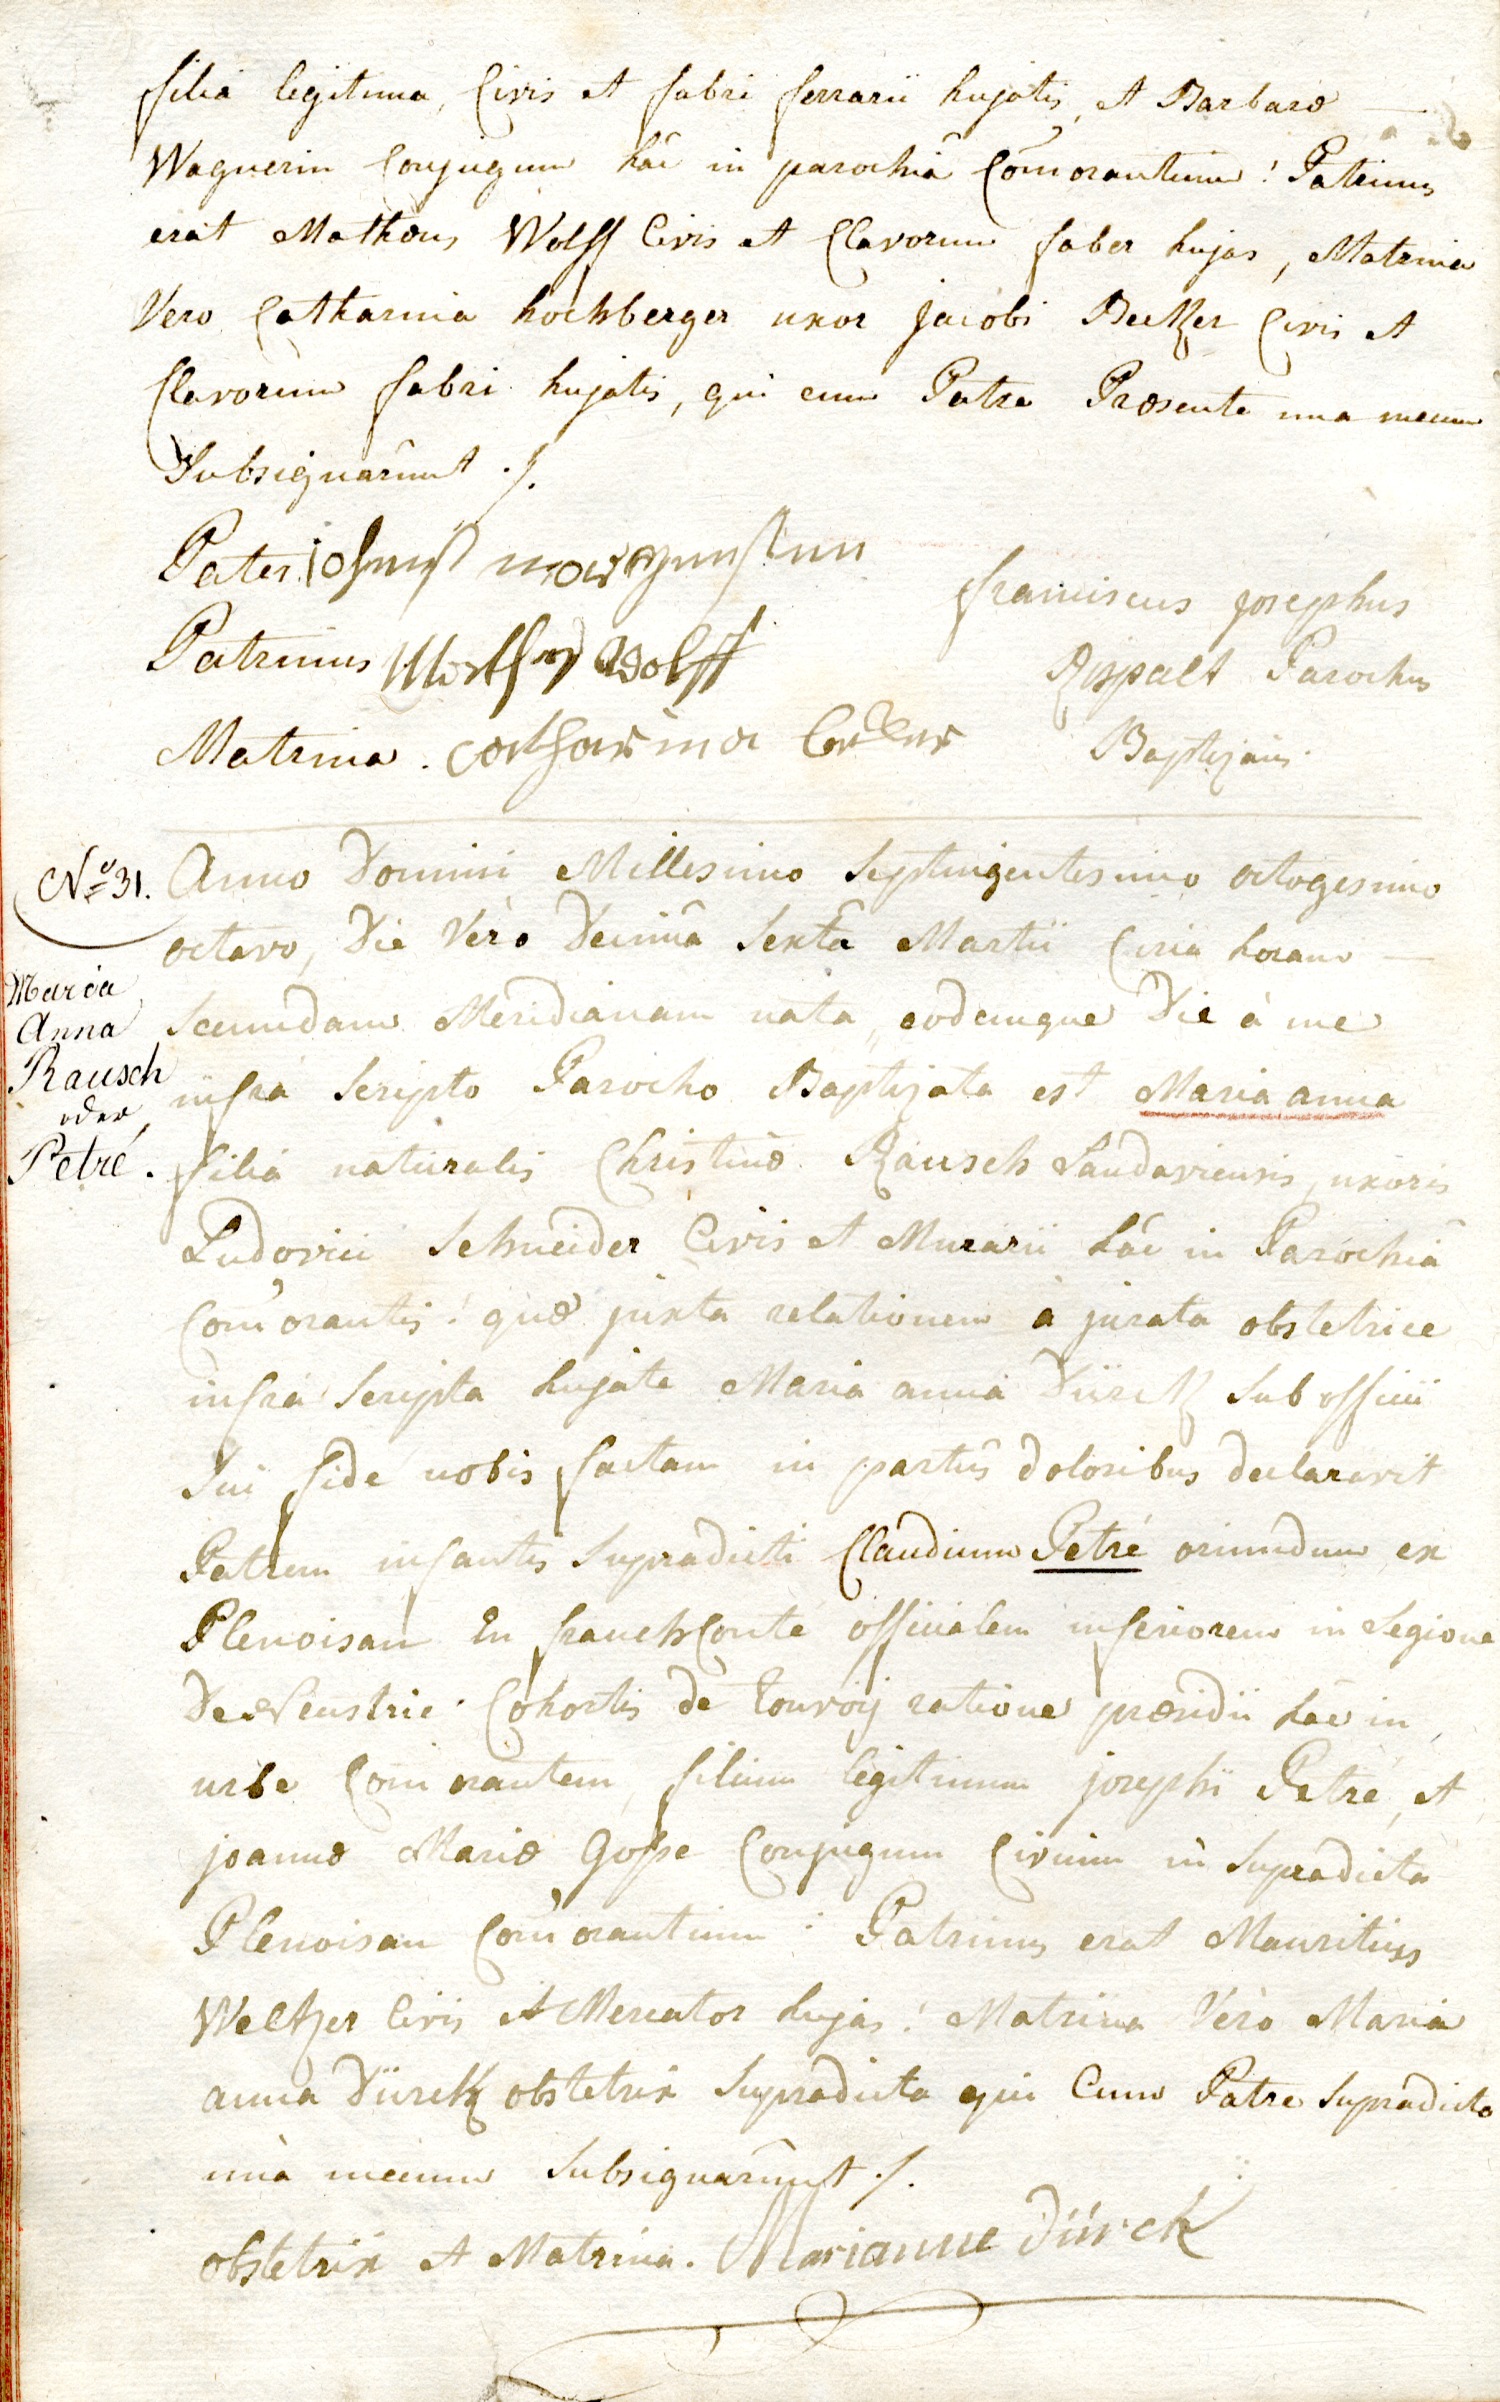 filia legitima, Civis et fabri ferrarii hujatis, et Barbaræ —
Wagnerin Conjugum hâc in parochiâ Com̃orantium! Patrinus
erat Mathæus Wolff Civis et Clavorum faber hujas, Matrina
Vero Catharina hochberger uxor jacobi Becker Civis et
Clavorum fabri hujatis, qui cum Patre Præsente una mecum
Subsignarûnt ./.
Pater
Patrinus Wolff
Matrina . catharina
franciscus josephus
Rispalt Parochus
Baptizans.
N.º 31.
Maria
Anna
Rausch
oder
Petré.
Anno Domini Millesimo Septingentesimo octogesimo
octavo, Die Verò Decimâ Sextâ Martii Circà horam —
Secundam Meridianam nata, eodemque Die à me
infrà Scripto Parocho Baptizata est Maria anna
filià naturalis Christinæ Rausch Landaviensis, uxoris
Ludovici Schneider Civis et Murarii hâc in Parochiâ
Com̃orantis! quæ juxta relationem à jurata obstetrice
infrà Scripta hujate Maria anna Dürck Sub officii
Sui fide nobis factam in partûs doloribus declaravit
Patrem infantis Supradicti Claudium Petré oriundum ex
Plenoisan En franchConté officialem inferiorem in Legione
De Neustrie Cohortis de Convoij ratione præsidii hâc in
urbe Com̃orantem, filium legitimum josephi Petré, et
joannæ Mariæ Gosse Conjugum Civium in Supradicta
Plenoisan Com̃orantium : Patrinus erat Mauritius
Weltzer Civis et Mercator hujas! Matrina Verò Maria
anna Dürck obstetrix Supradicta qui Cum Patre Supradicto
unà mecum Subsignarûnt ./.
obstetrix et Matrina. Marianne Dürck